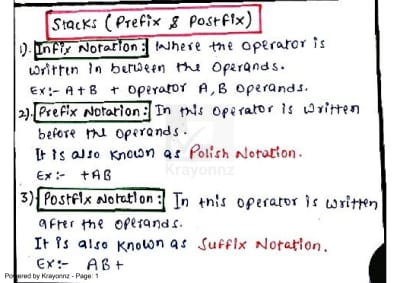 Stacks (Prefix & Postfix)
1). Infix Notation: Where the operator is
written in between the operands.
Ex:- A+B + operator A, B operands.
2). Prefix Notation: In this operator is written
before the operands.
It is also known as Polish Notation.
Ex:- +AB
Krayonnz
3) Postfix Notation: In this operator is written
after the operands.
It is also known as Suffix Notation.
Ex:- AB+
Powered by Krayonnz - Page: 1